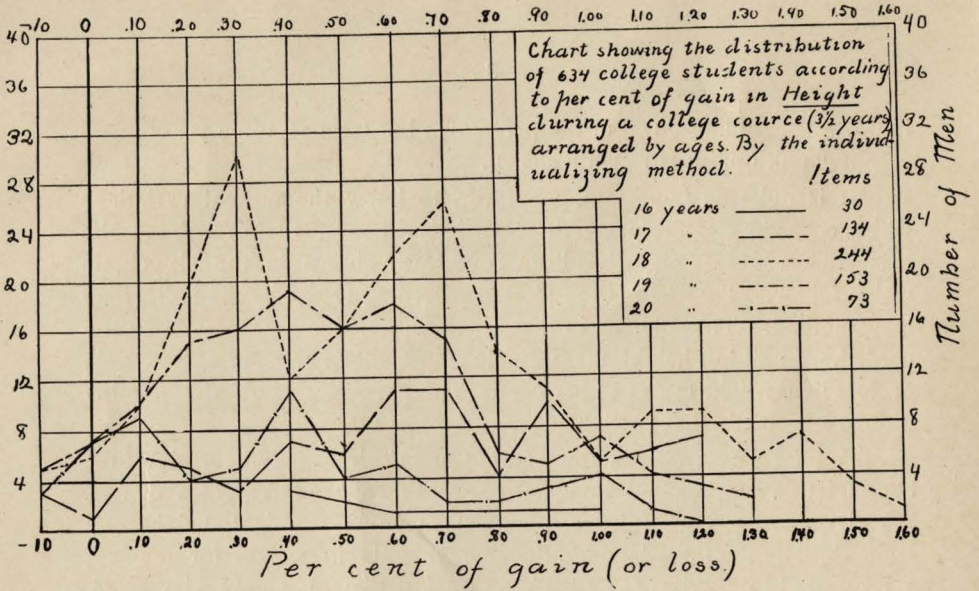 -/0 0 .10 .20 .30 .40 .50 .60 .70 .80 .90 1.00 1.10 1.20 1.30 1.40 1.50 1.60
40 40
36 36
32 32
28 28
24 24
20 20
16 16
12 12
8 8
4 4
Chart showing the distribution
of 634 college students according
to per cent of gain in Height
during a college cource (3½ years)
arranged by ages. By the individ-
ualizing method. Items
16 years 30
17 " 134
18 " 244
19 " 153
20 " 73
Number of Men
-10 0 .10 .20 .30 .40 .50 .60 .70 .80 .90 1.00 1.10 1.20 1.30 1.40 1.50 1.60
Per cent of gain (or loss.)